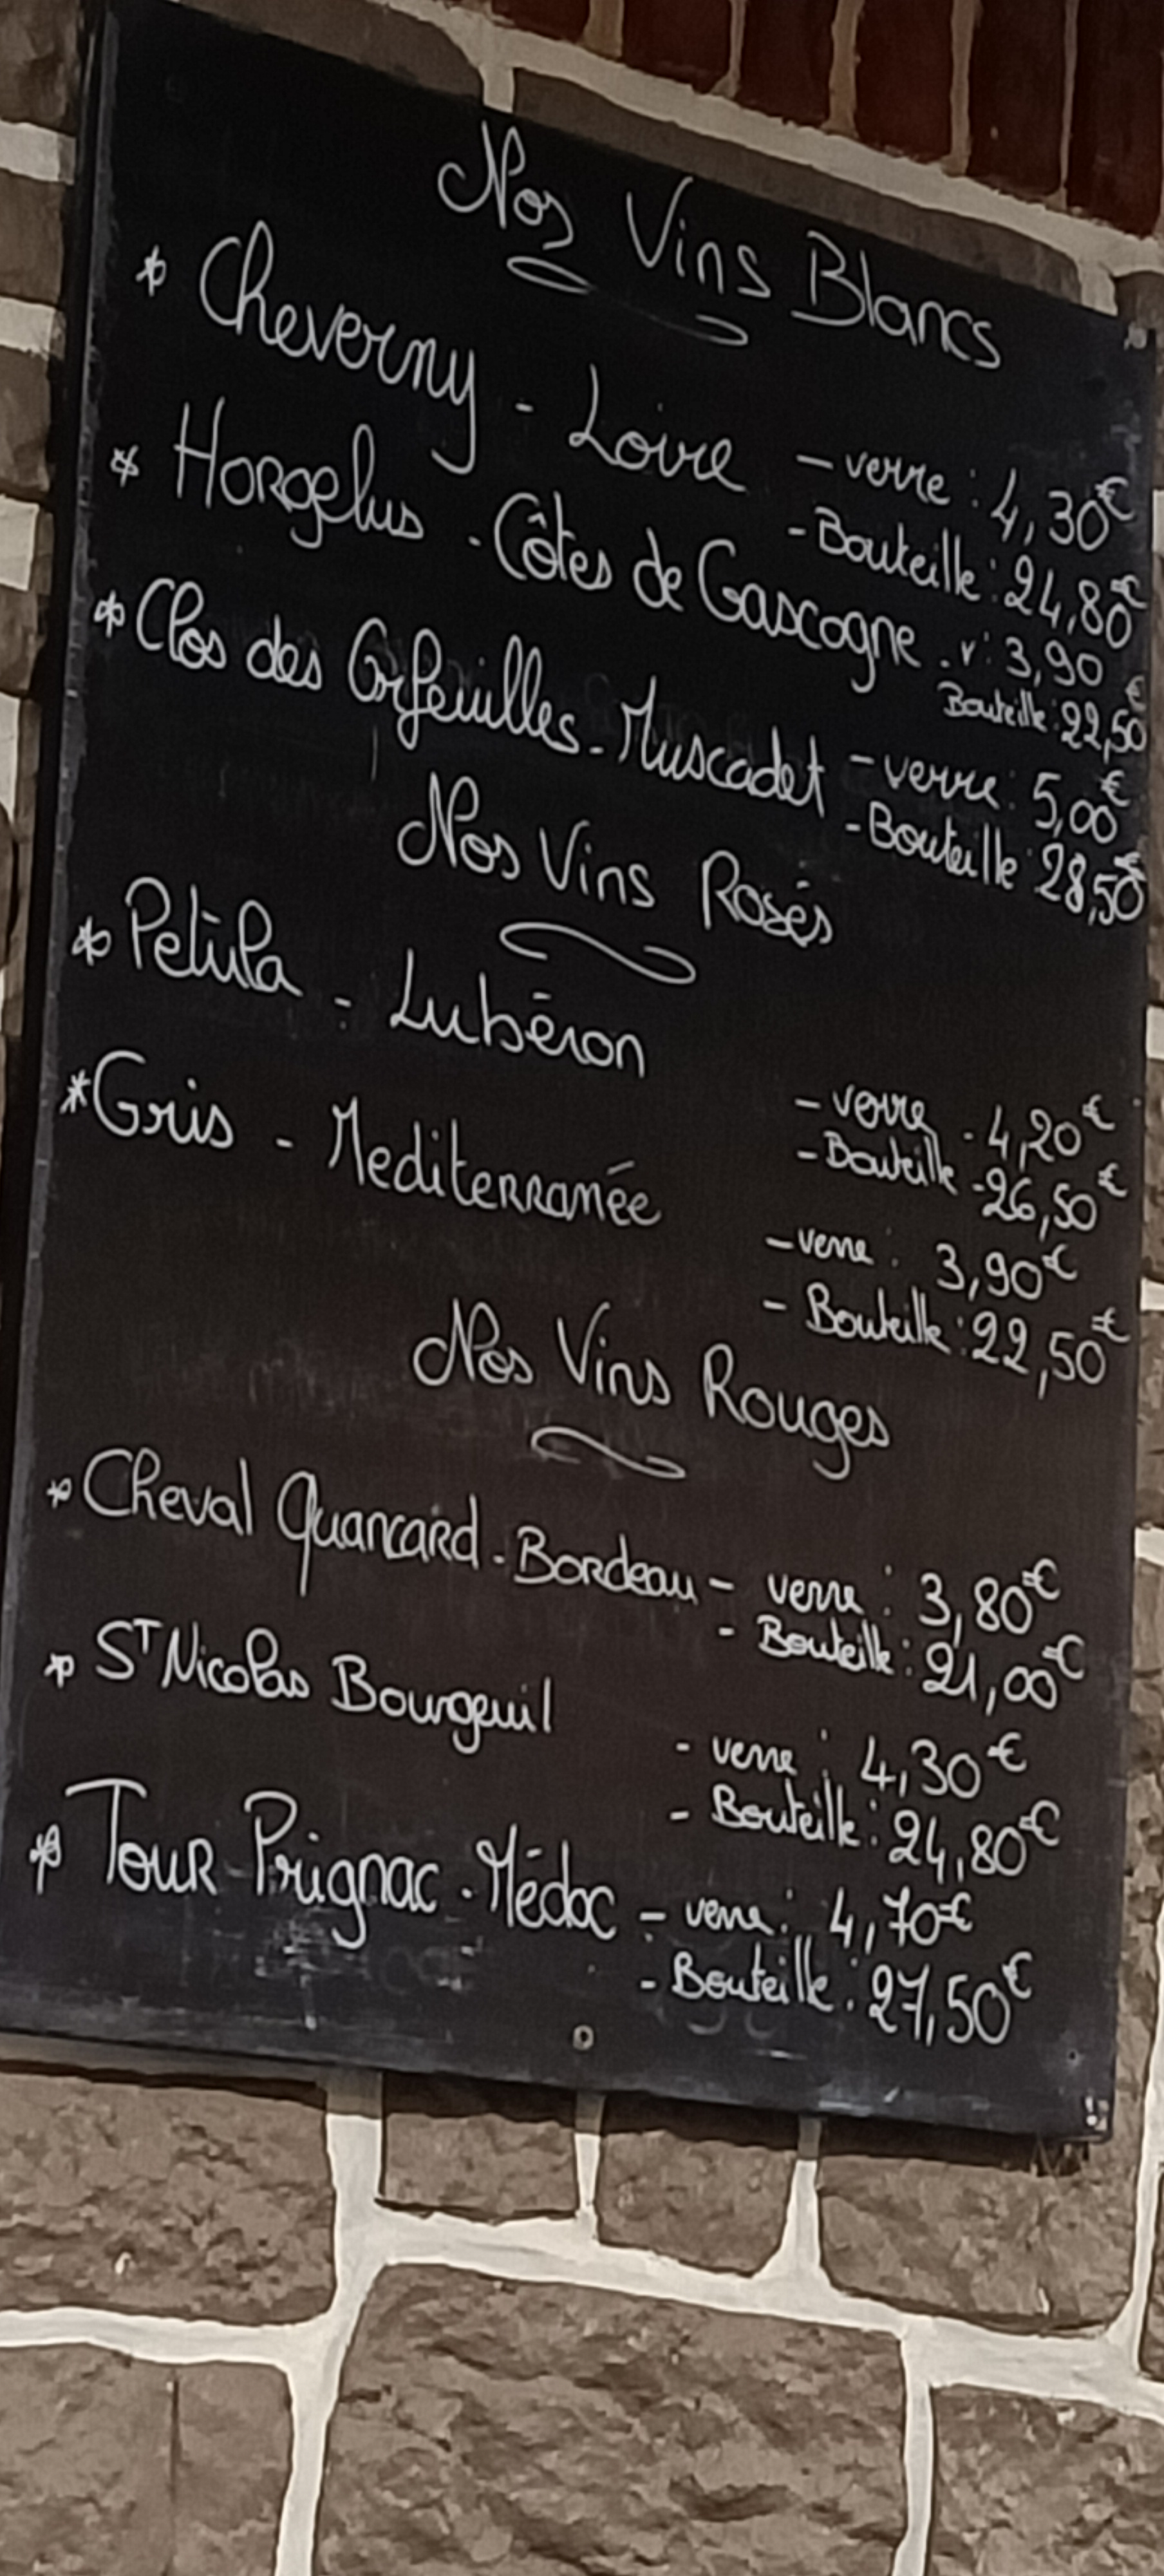 Nos Vins Blancs
* Cheverny - Loire - verre : 4,30€
- Bouteille : 24,80€
* Horgelus - Côtes de Gascogne - v : 3,90
Bouteille : 22,50€
* Clos des Orfeuilles - Muscadet - verre : 5,00€
- Bouteille : 28,50€
Nos Vins Rosés
* Petula - Lubéron
- verre - 4,20€
- Bouteille - 26,50€
* Gris - Mediterranée
- verre : 3,90€
- Bouteille : 22,50€
Nos Vins Rouges
* Cheval Quancard - Bordeau - verre : 3,80€
- Bouteille : 21,00€
* ST Nicolas Bourgeuil
- verre : 4,30€
- Bouteille : 24,80€
* Tour Prignac - Médoc - verre : 4,70€
- Bouteille : 27,50€